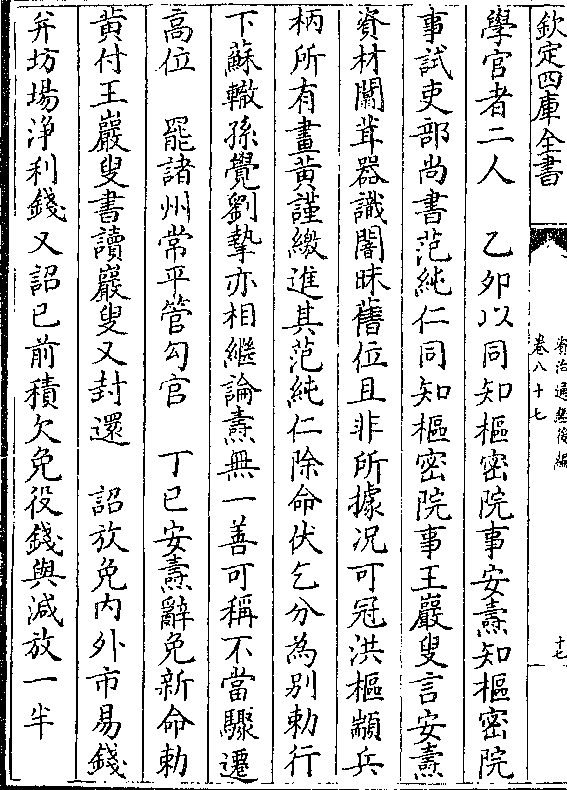 欽定四庫全書
資治通鑑後編
卷八十七
十七
學官者二人　乙卯以同知樞密院事安燾知樞密院
事試吏部尚書范純仁同知樞密院事王巖叟言安燾
資材闒茸器識闇昧舊位且非所據况可冠洪樞顓兵
柄所有畫黄謹繳進其范純仁除命伏乞分為别勅行
下蘇轍孫覺劉摯亦相繼論燾無一善可稱不當驟遷
高位　罷諸州常平管勾官　丁巳安燾辭免新命勅
黄付王巖叟書讀巖叟又封還　詔放免内外市易錢
并坊場净利錢又詔已前積欠免役錢與减放一半